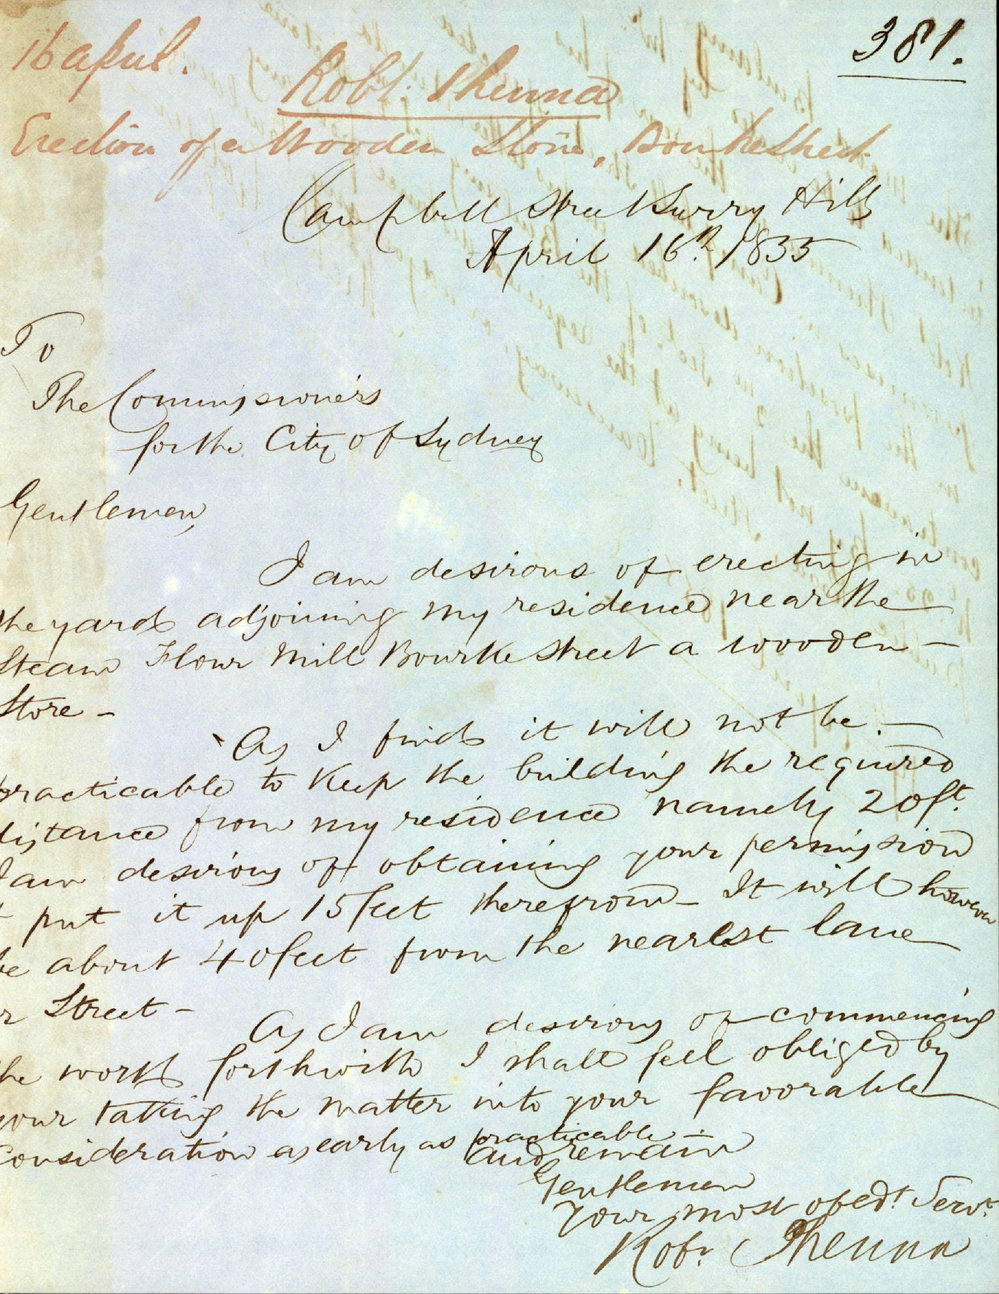 381.
16 April.
Robt. Thenna
Erection of a Wooden Store, Bourke Street
Campbell Street Surry Hills
April 16th 1855
To
The Commissioners
for the City of Sydney
Gentlemen,
I am desirous of erecting in
the yard adjoining my residence near the
Steam Flour Mill Bourke Street a wooden -
Store -
As I find it will not be -
practicable to keep the building the required
distance from my residence namely 20 ft.
I am desirous of obtaining your permission
t put it up 15 feet therefrom - It will however
be about 40 feet from the nearest lane
or Street -
As I am desirous of commencing
the work forthwith I shall feel obliged by
your taking the matter into your favorable
Consideration as early as practicable
and remain
Gentlemen
Your most obedt. Servt.
Robt. Thenna